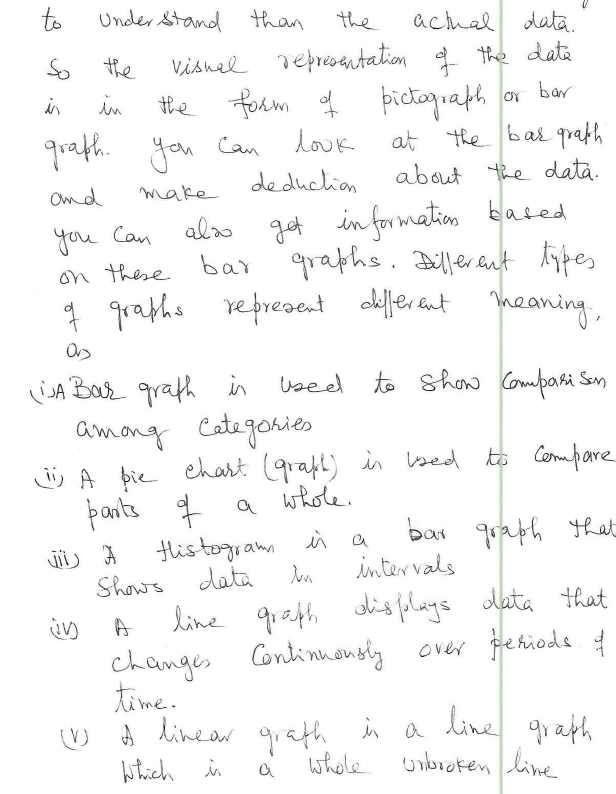 to understand than the actual data.
So the visual representation of the data
is in the form of pictograph or bar
graph. you can look at the bar graph
and make deduction about the data.
you can also get information based
on these bar graphs. Different types
of graphs represent different meaning,
as
(i) A Bar graph is used to show Comparison
among Categories
ii) A pie chart (graph) is used to Compare
parts of a whole.
iii) A Histogram is a bar graph that
Shows data in intervals
iv) A line graph displays data that
changes Continuously over periods of
time.
(v) A linear graph is a line graph
which is a whole unbroken line